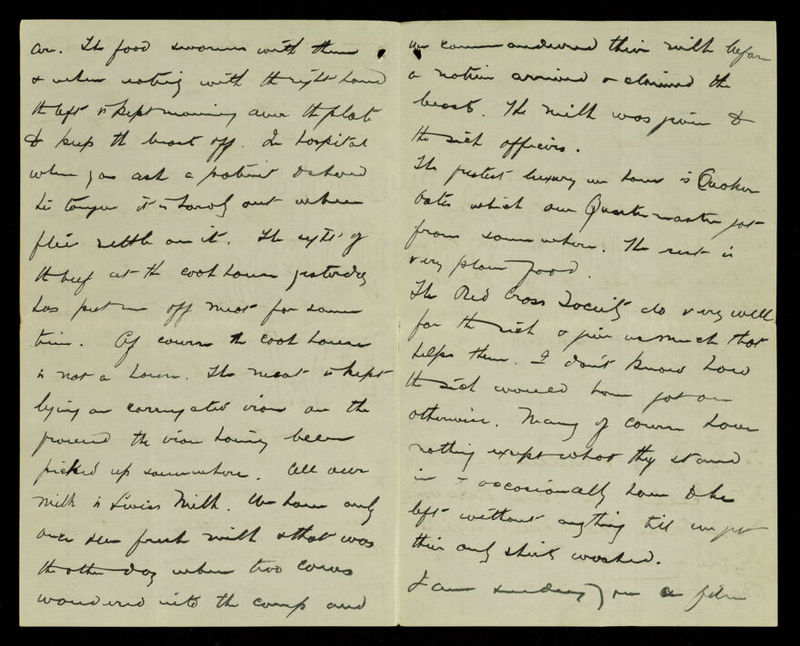 are. The food swarms with them
& when eating with the right hand
the left is kept moving over the plate
to keep the beasts off. In hospital
when you ask a patient to show
his tongue it is hardly out when
flies settle on it. The sight of
the beef at the cook house yesterday
has put me off meat for some
time. Of course the cook house
is not a house. The meat is kept
lying on corrugated iron on the
ground the iron having been
picked up somewhere. All our
milk is Swiss Milk. We have only
once seen fresh milk & that was
the other day when two cows
wandered into the camp and
we commandeered their milk before
a native arrived & claimed the
beasts. The milk was given to
the sick officers.
The greatest luxury we have is Quaker
Oates which our Quartermaster got
from somewhere. The rest is
very plain food.
The Red Cross Society do very well
for the sick & give us much that
helps them. I don't know how
the sick would have got on
otherwise. Many of course have
nothing except what they stand
in & occasionally have to be
left without anything till we get
their only shirt washed.
I am sending you a